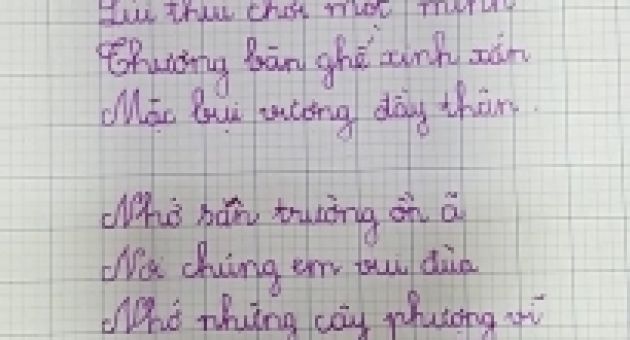 Lủi thủi chơi một mình
Thương bàn ghế xinh xắn
Mặc bụi vương đầy thân.
Nhớ sân trường ồn ã
Nơi chúng em vui đùa
Nhớ những cây phượng vĩ